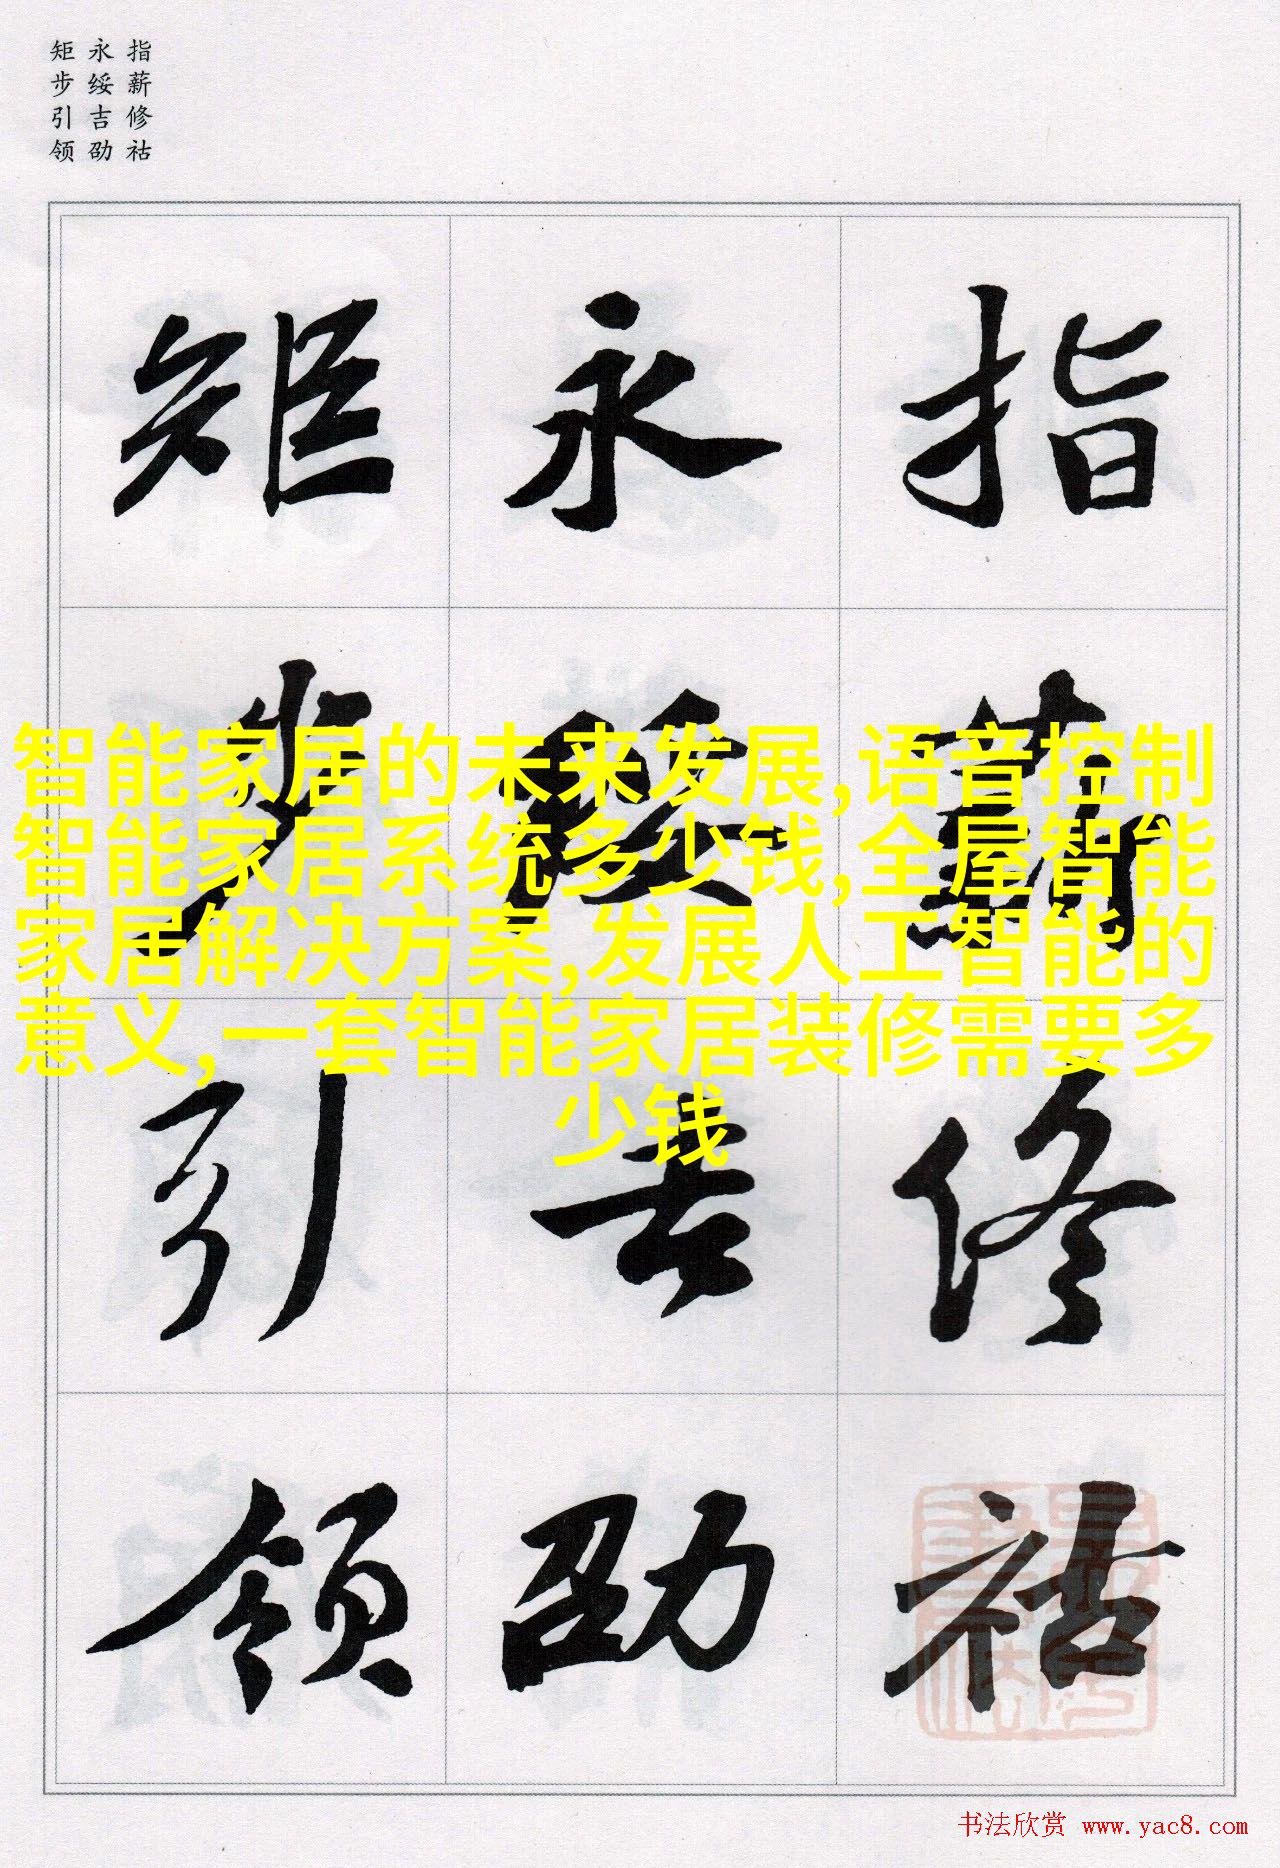 指薪修祜
永绥吉劭
矩步引领
指薪修祜
永绥吉劭
矩步引领
智能家居的未来发展,语音控制
智能家居系统多少钱,全屋智能
家居解决方案,发展人工智能的
意义,一套智能家居装修需要多
少钱
书法欣赏 www.yac8.com